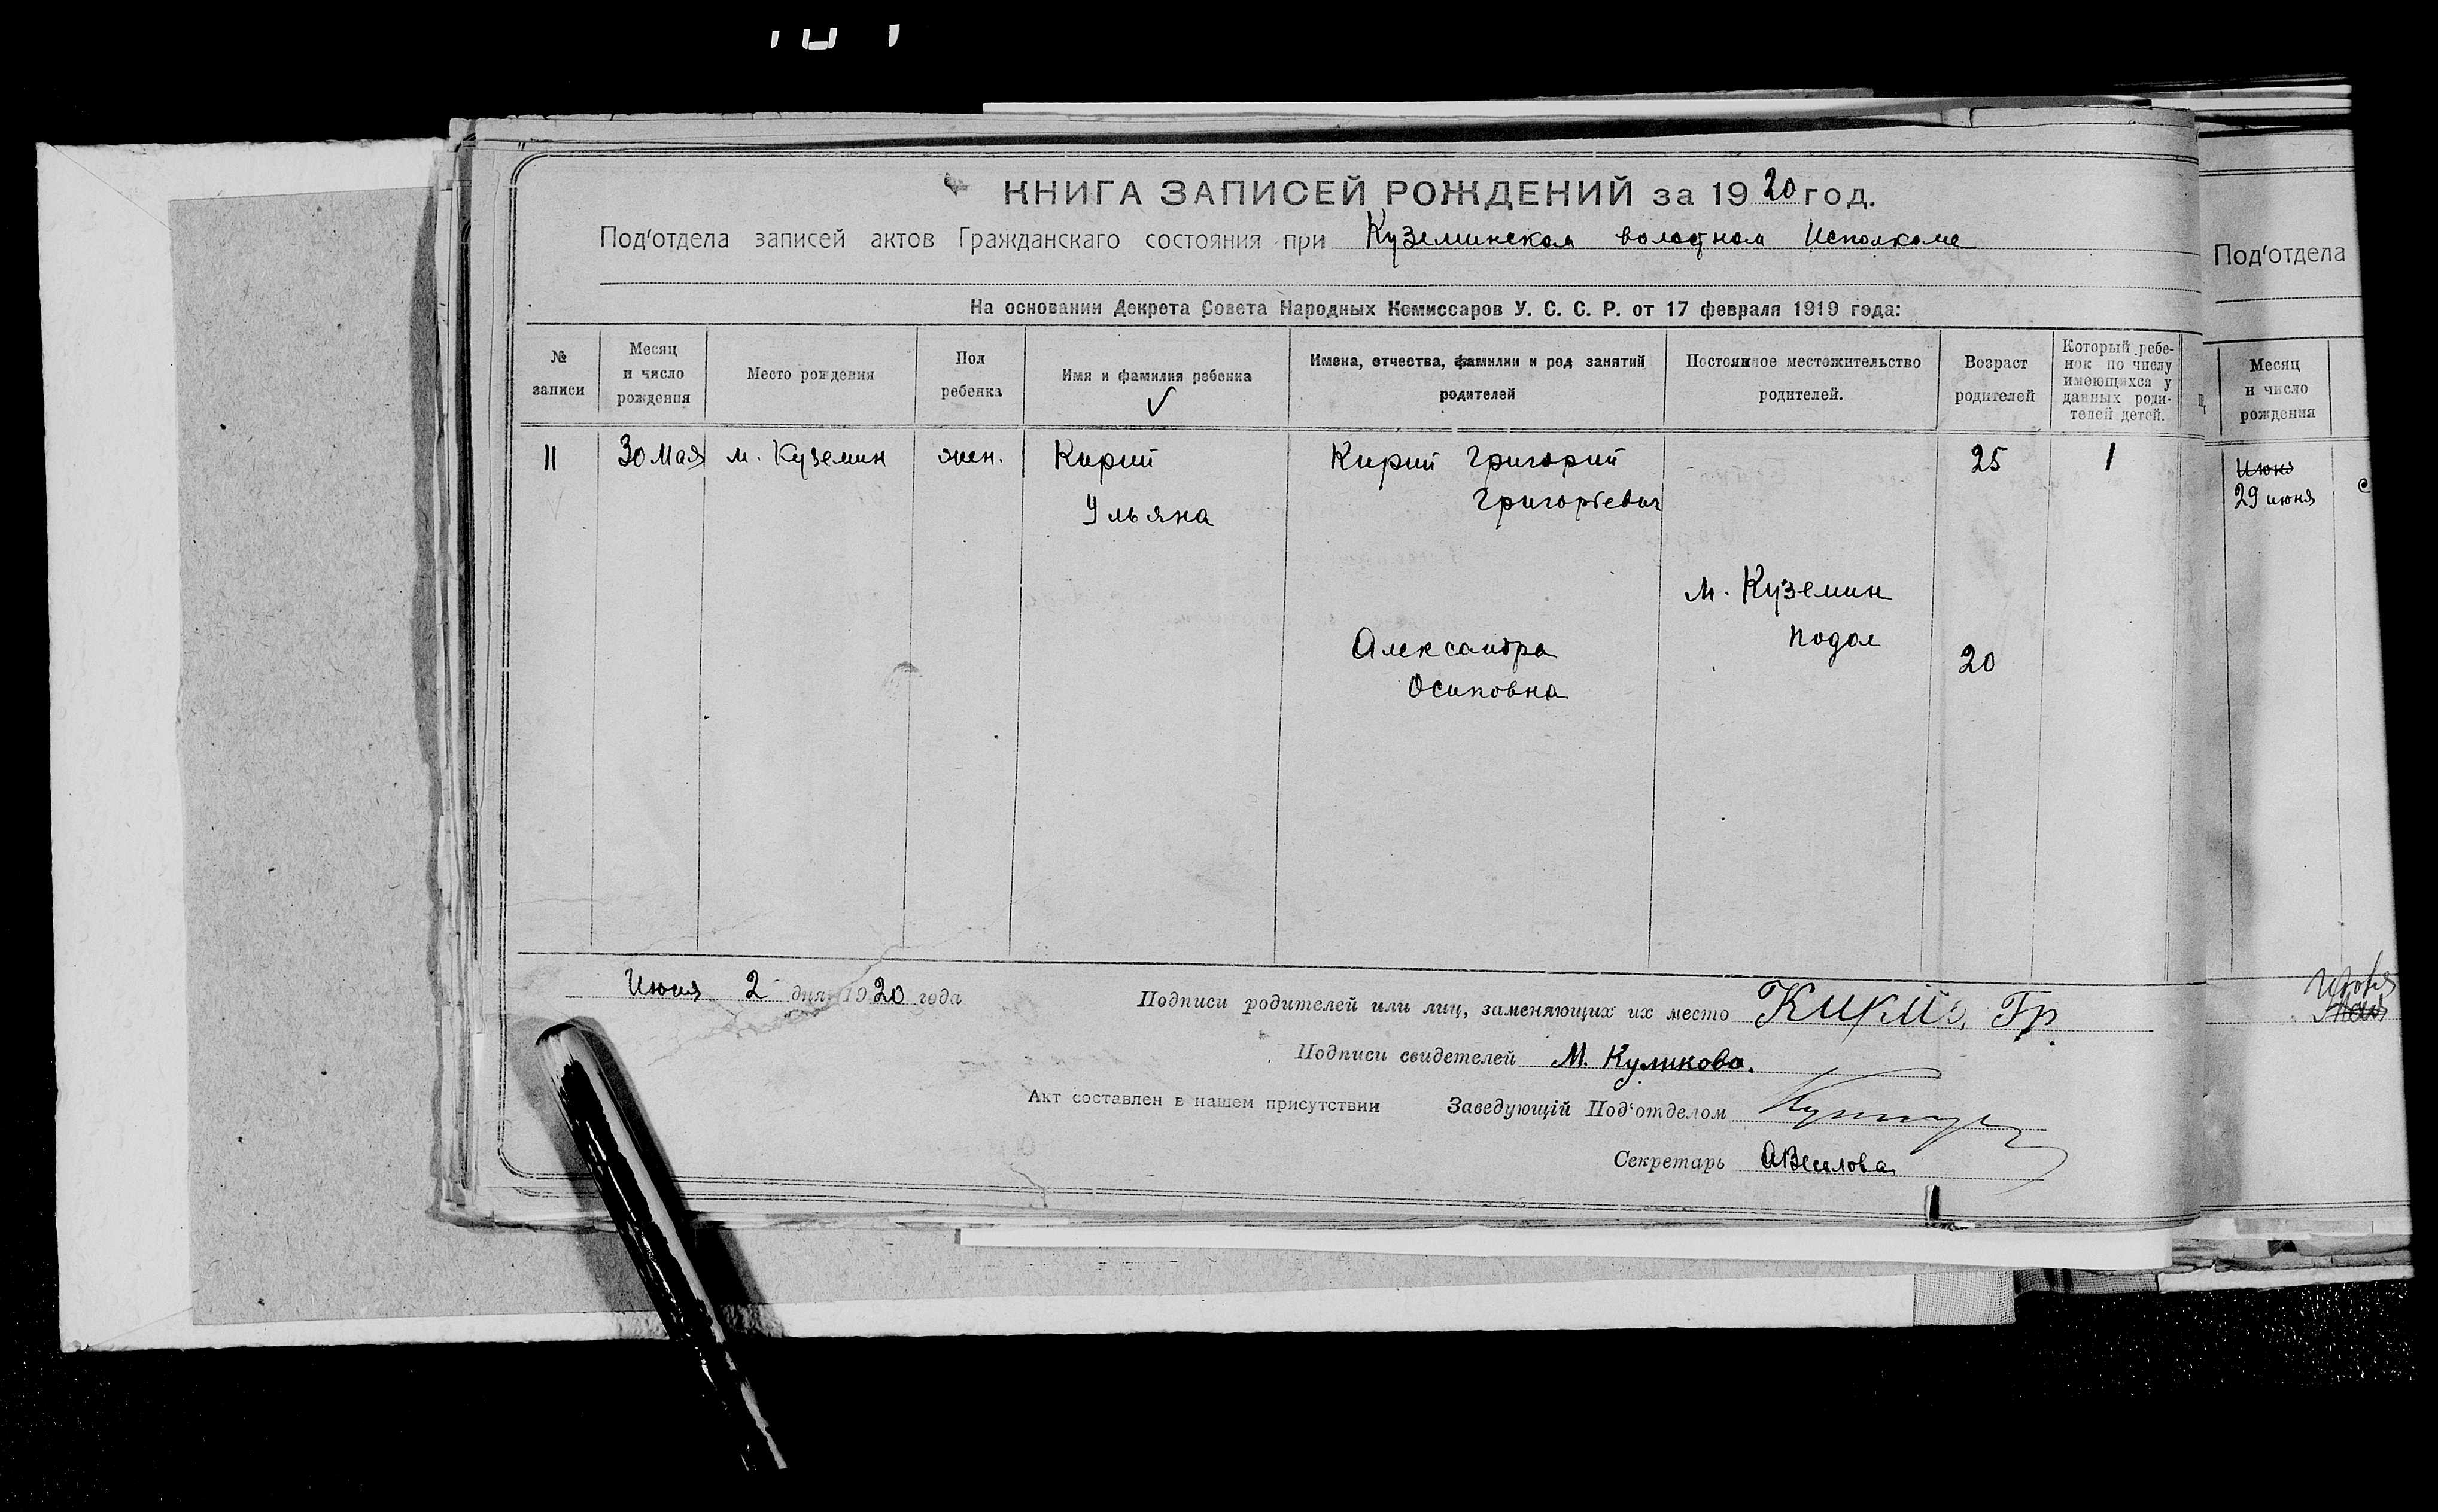 КНИГА ЗАПИСЕЙ РОЖДЕНИЙ за 1920 год.
Под'отдела записей актов Гражданскаго состояния при Куземинском волостном Исполкоме
На основании Декрета Совета Народных Комиссаров У. С. С. Р. от 17 февраля 1919 года:
№ записи
Месяц и число рождения
Место рождения
Пол ребенка
Имя и фамилия ребенка
Имена, отчества, фамилии и род занятий родителей
Постоянное местожительство родителей.
Возраст родителей
Который ребенок по числу имеющихся у данных родителей детей.
11
30 Мая
м. Куземин
жен.
Кирий
Ульяна
Кирий Григорий
Григорiевич
25
1
м. Куземин
Подол
Александра
Осиповна
20
Июня 2 дня 1920 года
Подписи родителей или лиц, заменяющих их место Гр.
Подписи свидетелей М. Куликова.
Акт составлен в нашем присутствии Заведующiй Под'отделом
Секретарь АВеселова
Под'отдела
Месяц и число рождения
29 июня